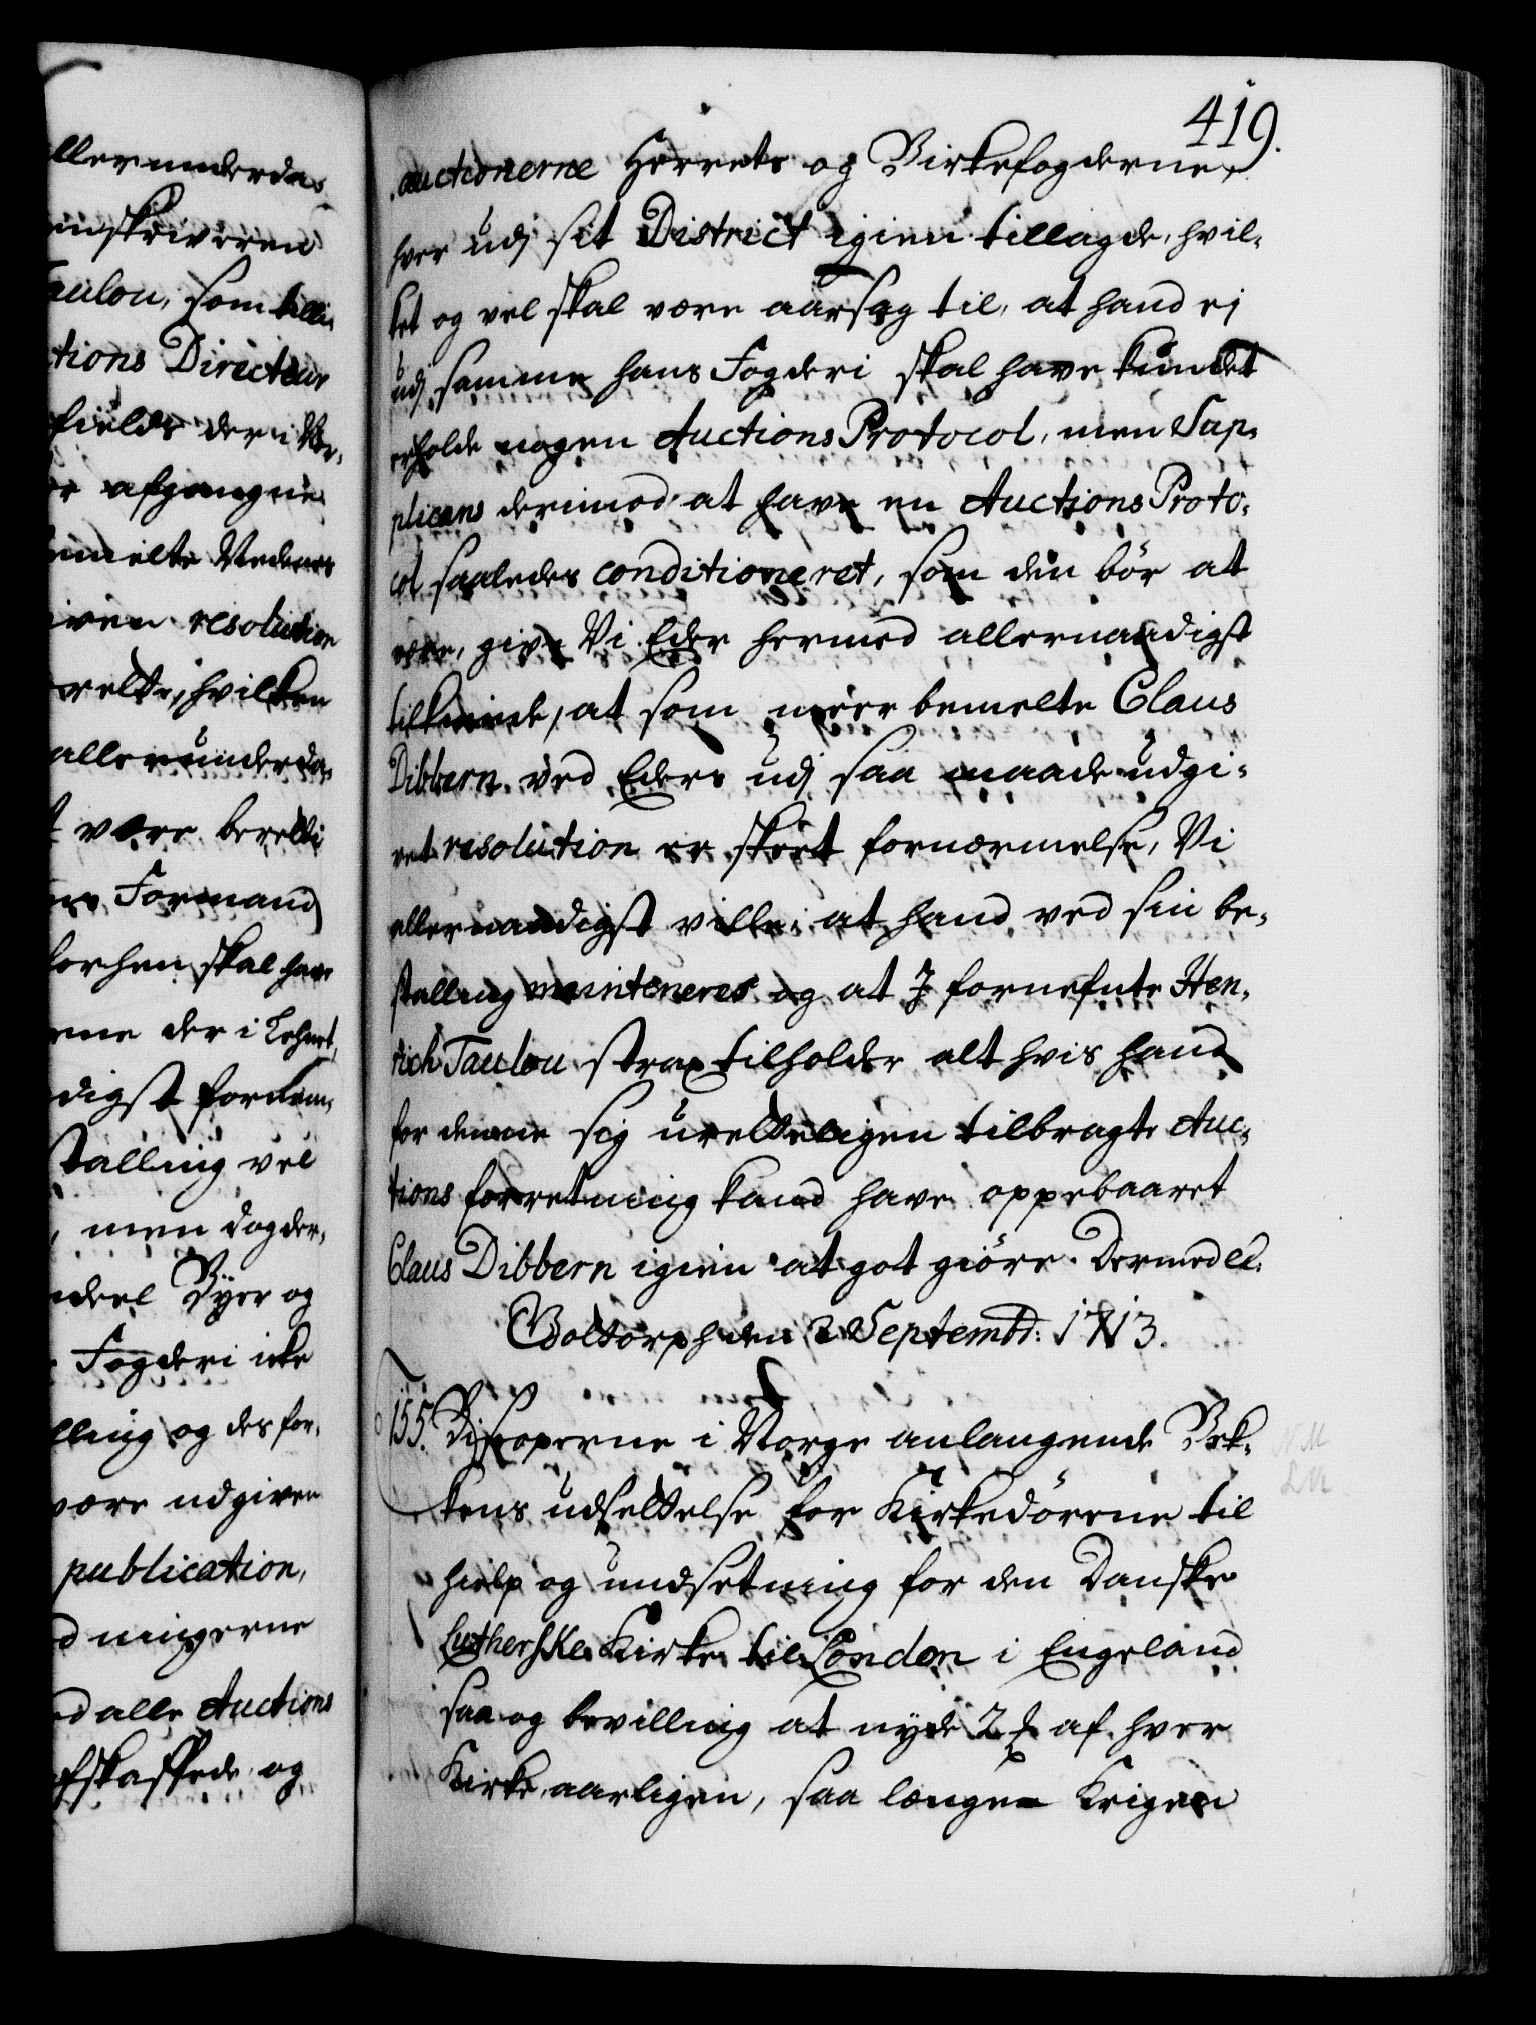 llerunderda¬
enskriveren
aulou, som tilli¬
tions Directeur
fields der i Nor¬
er afgangne
emelte Vedeners
iven resolution
hvilken
allerunderda¬
t være beretti
Formand
forhen skal have
rne der i Lehnet
digst fornem¬
stalling vel
, men dog der¬
ndeel Byer og
Fogderi icke
lling og des for¬
være udgiven
publication,
dningerne
ed alle Auctions
fskaffede og
419.
auctionerne Herrets og Birkefogderne,
hver udj sit District igien tillagde, hvil¬
ket og vel skal være aarsag til, at hand ej
udj samme hans Fogderi skal have kundet
erholde nogen Auctions Protocol, men Sup¬
plicans derimod at have en Auctions Proto¬
col saaledes conditioneret, som den bör at
være, give Vi Eder hermed allernaadigst
tilkiende, at som meer bemelte Claus
Dibbern ved Eders udj saa maade udgi¬
vet resolution er skeet fornærmelse, Vi
allernaadigst ville, at hand ved sin be¬
stalling mainteneres og at I fornefnte Hen¬
rich Taulou strax tilholder alt hvis hand
for denne sig uretteligen tilbragte Auc¬
tions forretning kand have oppebaaret
Claus Dibbern igien at got giöre. Dermed et.
Gottorph den 2 Septembr: 1713.
155. Bisperne i Norge anlangende Bek¬
kens udsettelse for Kirkedörene til
hielp og undsetning for den Danske
Lutherske Kirke til London i Engeland
saa og bevilling at nyde 2 af hver
Kirke aarligen, saa længe Krigen